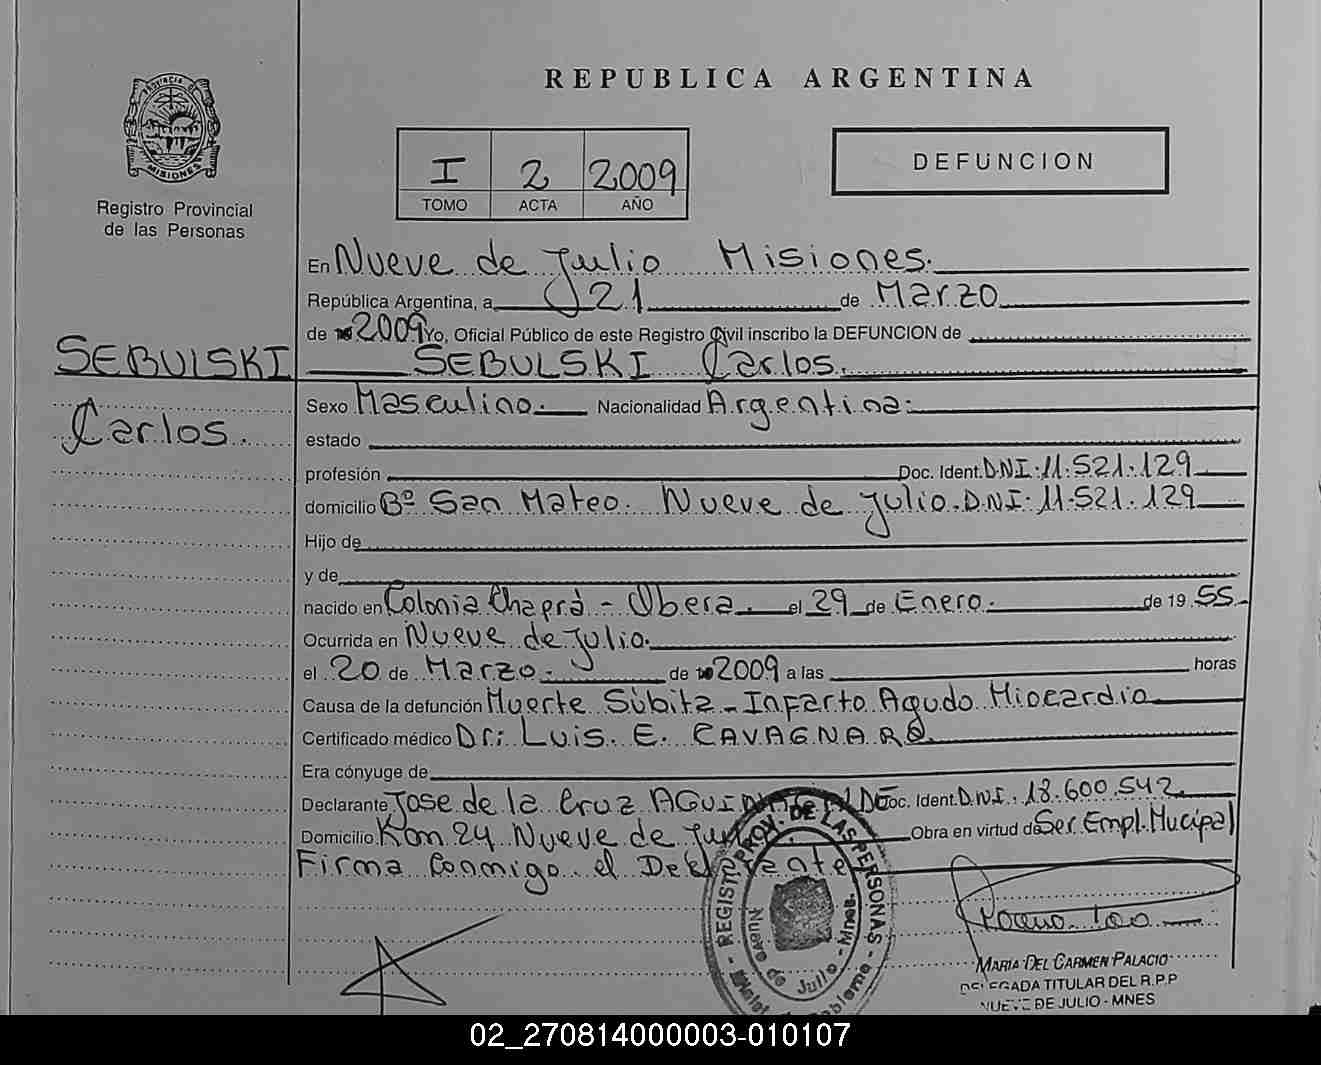 REPUBLICA ARGENTINA
PROVINCIA DE
MISIONES
Registro Provincial
de las Personas
I 2 2009
TOMO ACTA AÑO
DEFUNCION
En Nueve de Julio Misiones.
República Argentina, a 21 de Marzo
de 2009 Yo, Oficial Público de este Registro Civil inscribo la DEFUNCION de
SEBULSKI SEBULSKI Carlos.
Carlos.
Sexo Masculino. Nacionalidad Argentina.
estado
profesión Doc. Ident. DNI: 11.521.129
domicilio Bº San Mateo. Nueve de Julio. DNI: 11.521.129
Hijo de
y de
nacido en Colonia Chapá - Obera. el 29 de Enero. de 19 55.
Ocurrida en Nueve de Julio.
el 20 de Marzo. de 2009 a las horas
Causa de la defunción Muerte Súbita - Infarto Agudo Miocardio
Certificado médico Dr: LUIS. E. CAVAGNARO.
Era cónyuge de
Declarante Jose de la Cruz Doc. Ident. D.N.I. 18.600.542.
Domicilio Km 24 Nueve de Obra en virtud de Ser Empl. Mucipal
Firma Conmigo el
REGISTO PROV. DE LAS PERSONAS
Nueve de Julio - Mnes.
MARIA DEL CARMEN PALACIO
DELEGADA TITULAR DEL R.P.P
NUEVE DE JULIO - MNES
02_270814000003-010107